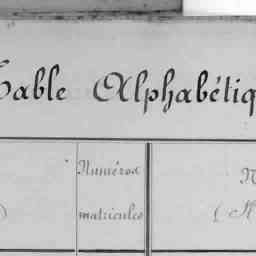 Table Alphabétiq
Numéros
matricules